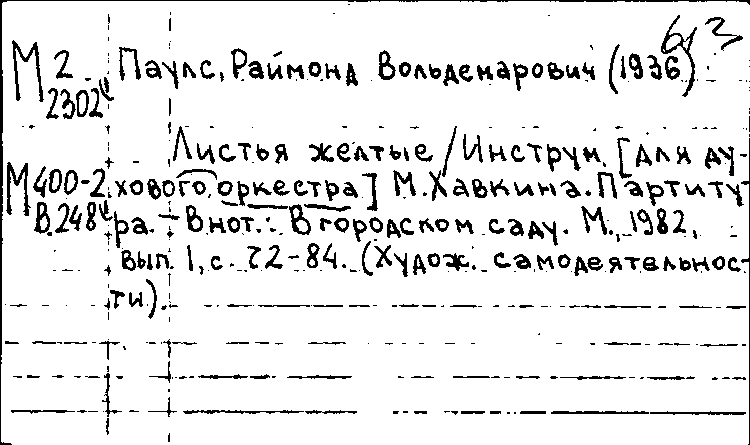 М 2 Паулс, Раймонд Вольдемарович (1936)
2302
Листья желтые / Инструм. [для ду-
М 400-2 хового оркестра] М. Хавкина. Партиту-
В.248 ра. — В нот.: В городском саду. М., 1982,
вып. 1, с. 72-84. (Худож. самодеятельнос-
ти).